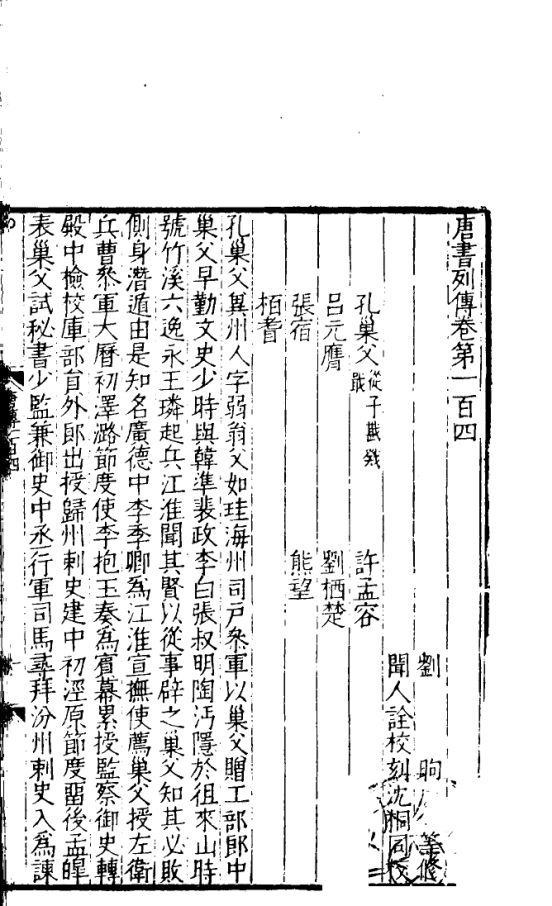 唐書列傳卷第一百四
劉 昫 等修
聞人詮校刻沈桐同校
孔巢父 從子戡 戣 戢 許孟容
呂元膺 劉栖楚
張宿 熊望
栢耆
孔巢父兾州人字弱翁父如珪海州司戶叅軍以巢父贈工部郎中
巢父早勤文史少時與韓準裴政李白張叔明陶沔隱於徂來山時
號竹溪六逸永王璘起兵江淮聞其賢以從事辟之巢父知其必敗
側身潛遁由是知名廣德中李季卿為江淮宣撫使薦巢父授左衛
兵曹叅軍大曆初澤潞節度使李抱玉奏為賔幕累授監察御史轉
殿中檢校庫部員外郎出授歸州刺史建中初涇原節度畱後孟皥
表巢父試秘書少監兼御史中丞行軍司馬尋拜汾州刺史入為諫